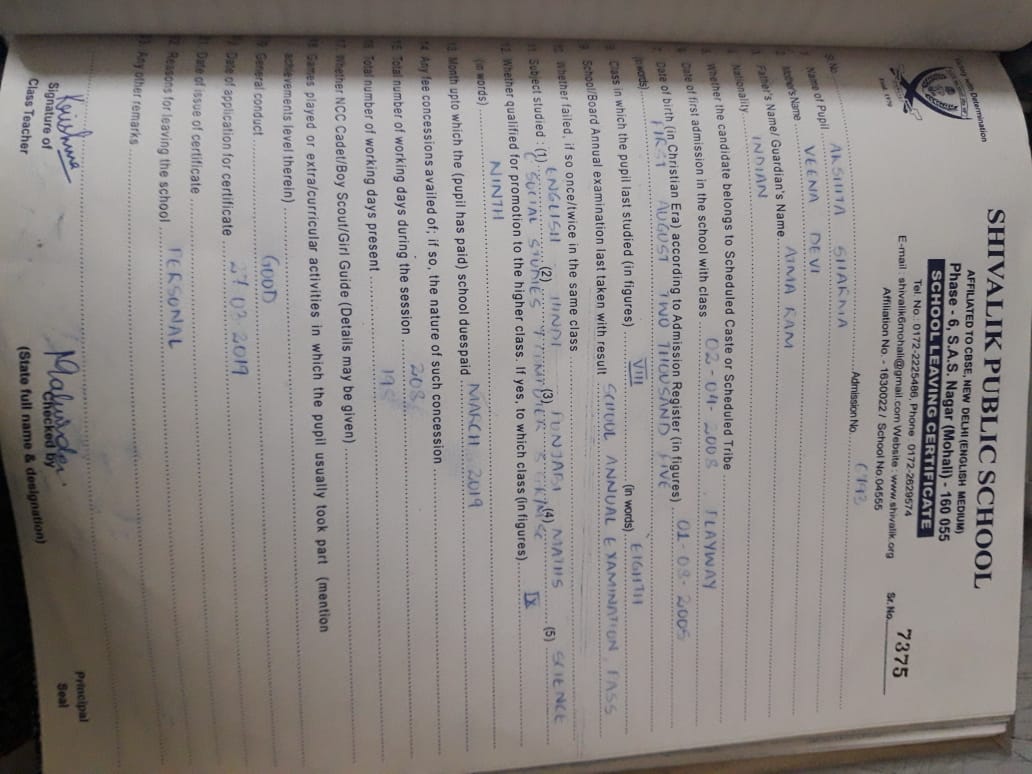 Victory with Determination
SHIVALIK PUBLIC SCHOOL
AFFILIATED TO CBSE, NEW DELHI (ENGLISH MEDIUM)
Phase - 6, S.A.S. Nagar (Mohali) - 160 055
SCHOOL LEAVING CERTIFICATE
Tel No.: 0172-2225486, Phone 0172-2629574
E-mail : shivalik6mohali@gmail.com Website : www.shivalik.org
Affiliation No. - 1630022 / School No.04555
Sr. No. 7375
Sl. No. Admission No.
1 Name of Pupil AKSHITA SHARMA
2 Mother's Name VEENA DEVI
3 Father's Name/ Guardian's Name ATMA RAM
4 Nationality INDIAN
5 Whether the candidate belongs to Scheduled Caste or Scheduled Tribe
6 Date of first admission in the school with class 02-04-2008, PLAYWAY
7 Date of birth (in Christian Era) according to Admission Register (in figures) 01-08-2005
(in words) FIRST AUGUST TWO THOUSAND FIVE
8 Class in which the pupil last studied (in figures) VIII (in words) EIGHTH
9 School/Board Annual examination last taken with result SCHOOL ANNUAL EXAMINATION, PASS
10 Whether failed, if so once/twice in the same class
11 Subject studied : (1) ENGLISH (2) HINDI (3) PUNJABI (4) MATHS (5) SCIENCE
SOCIAL STUDIES
12 Whether qualified for promotion to the higher class. If yes, to which class (in figures) IX
(in words) NINTH
13 Month upto which the (pupil has paid) school duespaid MARCH, 2019
14 Any fee concessions availed of; if so, the nature of such concession
15 Total number of working days during the session
16 Total number of working days present
17. Whether NCC Cadet/Boy Scout/Girl Guide (Details may be given)
18 Games played or extra/curricular activities in which the pupil usually took part (mention
achievements level therein)
19 General conduct GOOD
20 Date of application for certificate 27-03-2019
21 Date of issue of certificate
22 Reasons for leaving the school PERSONAL
23 Any other remarks
Karishma
Signature of
Class Teacher
Checked by
(State full name & designation)
Principal
Seal